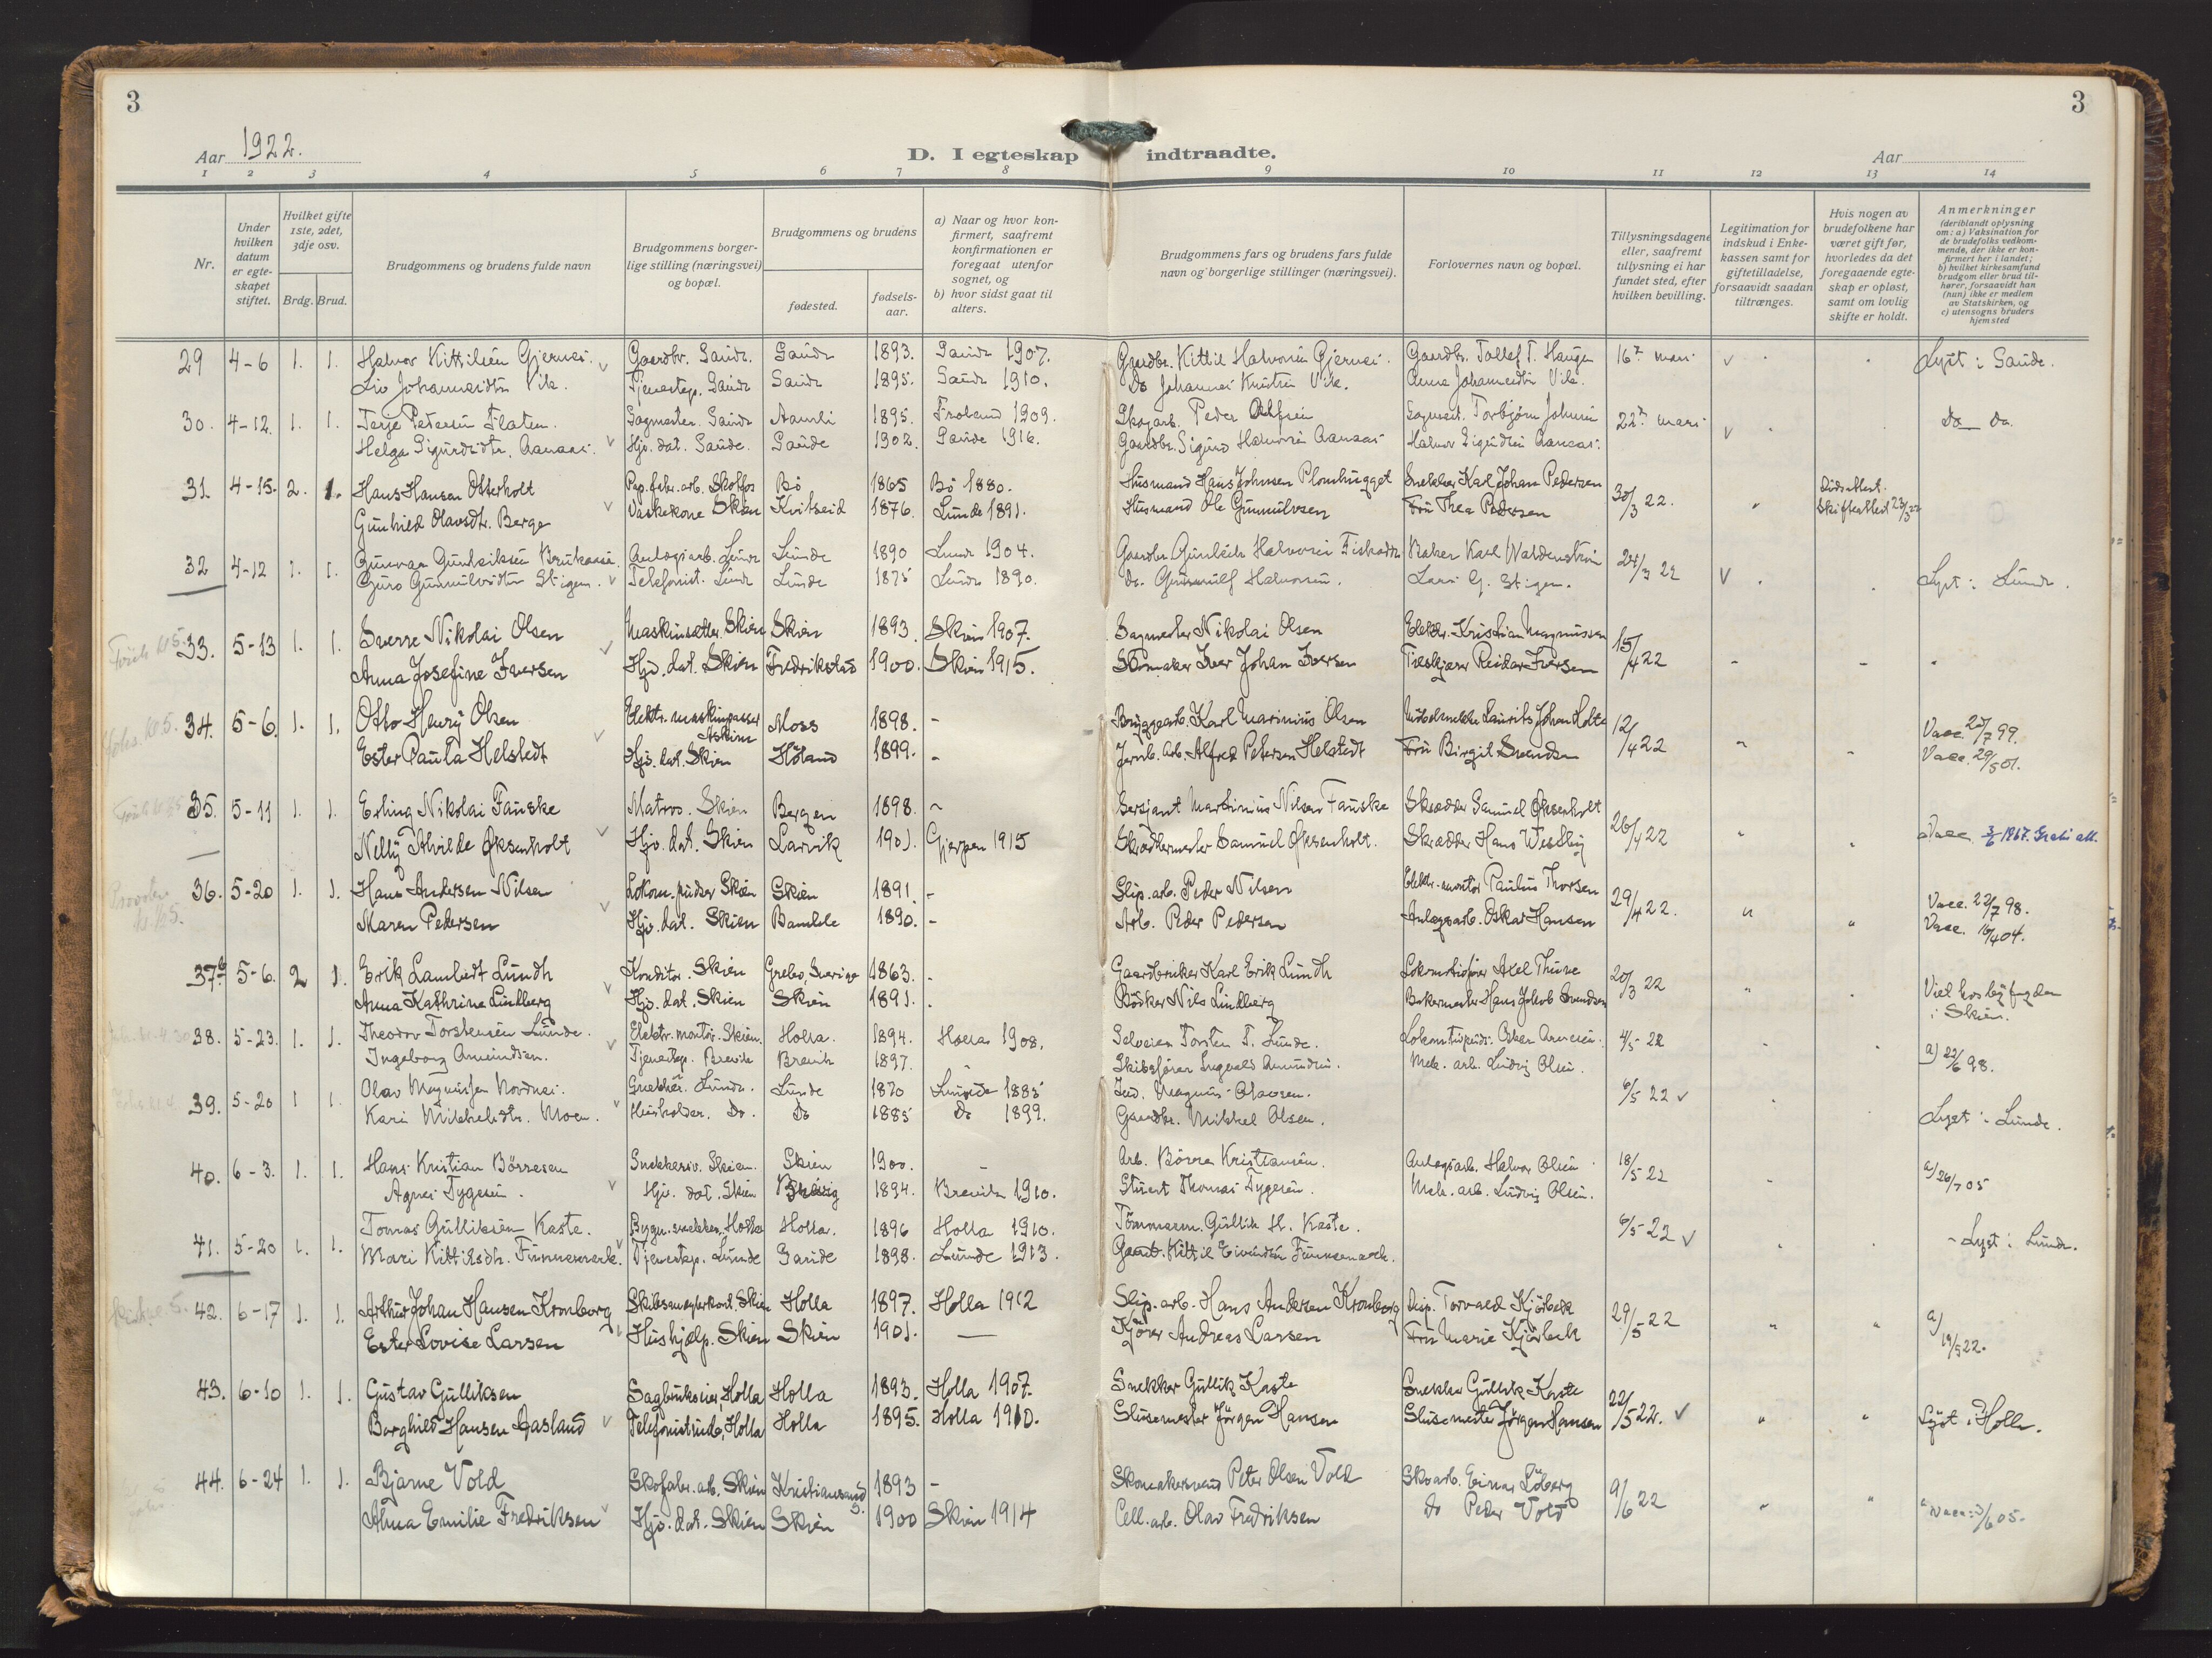 3
3
Aar 1922.
D. I egteskap indtraadte.
Aar
1 2 3 4 5 6 7 8 9 10 11 12 13 14
Nr.
Under hvilken datum er egteskapet stiftet.
Hvilket gifte 1ste, 2det, 3dje osv.
Brdg. Brud.
Brudgommens og brudens fulde navn
Brudgommens borgerlige stilling (næringsvei) og bopæl.
Brudgommens og brudens
fødested.
fødselsaar.
a) Naar og hvor konfirmert, saafremt konfirmationen er foregaat utenfor sognet, og
b) hvor sidst gaat til alters.
Brudgommens fars og brudens fars fulde navn og borgerlige stillinger (næringsvei).
Forlovernes navn og bopæl.
Tillysningsdagene eller, saafremt tillysning ei har fundet sted, efter hvilken bevilling.
Legitimation for indskud i Enkekassen samt for giftetilladelse, forsaavidt saadan tiltrænges.
Hvis nogen av brudefolkene har været gift før, hvorledes da det foregaaende egteskap er opløst, samt om lovlig skifte er holdt.
Anmerkninger (deriblandt oplysning om: a) Vaksination for de brudefolks vedkommende, der ikke er konfirmert her i landet; b) hvilket kirkesamfund brudgom eller brud tilhører, forsaavidt han (hun) ikke er medlem av Statskirken, og c) utensogns bruders hjemsted
29 4-6 1. 1. Halvor Kittilsen Gjernes. Gaardbr. Saude. Saude 1893. Saude 1907. Gaardbr. Kittil Halvorsen Gjernes. Gaardbr. Tollef T. Haugen 16de mars Lyst i Saude.
Liv Johannesdtr. Vik. Tjenestep. Saude Saude 1895. Saude 1910. Do Johannes Knutsen Vik. Anne Johannesdtr. Vik.
30. 4-12. 1. 1. Terje Petersen Flaten. Sagmester. Saude Aamli 1895. Froland 1909. Skogarb. Peder Torbjørn Johnsen 22de mars Do Do.
Helga Sigurdsdtr. Aanaas. Hjv. dat. Saude. Saude 1902. Saude 1916. Gaardbr. Sigurd Halvorsen Aanaas. Halvor Sigurdsen Aanaas.
31. 4-15. 2. 1. Hans Hansen Otterholt Pap.fabr.arb. Skotfos Bø 1865 Bø 1880. Husmand Hans Johnsen Plomhugget Snekker Karl Johan Pedersen 30/3 22. Skifteattest 23/3 22
Gunhild Olavsdtr. Berge Vaskekone Skien Kvitseid 1876. Lunde 1891. Husmand Ole Gunnulvsen Fru Thea Pedersen
32 4-12 1. 1. Gunvar Gunleiksen Anlægsarb. Lunde Lunde 1890 Lunde 1904. Gaardbr. Gunleik Halvorsen Baker Karl Waldenstrøm 24/3 22 Lyst i Lunde.
Guro Gunnulvsdtr. Stigen. Telefonist. Lunde Lunde 1875 Lunde 1890. do. Gunnulf Halvorsen. Lars G. Stigen.
33. 5-13 1. 1. Sverre Nikolai Olsen Maskinsætter. Skien Skien 1893. Skien 1907. Sagmester Nikolai Olsen Elektr. Kristian Magnussen 15/4 22
Anna Josefine Iversen Hjv. dat. Skien Fredrikstad 1900. Skien 1915. Skomaker Iver Johan Iversen Træskjærer Reidar Iversen
34. 5-6. 1. 1. Otto Henry Olsen Elektr. maskinpasser Askim Moss 1898. - Bryggearb. Karl Marinius Olsen Møbelsnekker Laurits Johan Holte 12/4 22 Vacc. 25/7 99.
Ester Paula Helstedt Hjv. dat. Skien Høland 1899. - Jernb. arb. Alfred Petersen Helstedt Fru Birgit Svendsen Vacc. 29/5 01.
35. 5-11 1. 1. Erling Nikolai Fauske Matros. Skien Bergen 1898. Sersjant Martinius Nilsen Fauske Skrædder Samuel Øksenholt 26/4 22
Nelly Alvilde Øksenholt Hjv. dat. Skien Larvik 1901. Gjerpen 1915 Skræddermester Samuel Øksenholt. Skrædder Hans Westby
36. 5-20 1. 1. Hans Andersen Nilsen Lokom. pudser Skien Skien 1891. - Slip. arb. Peder Nilsen Elektr. montør Paulus Thorsen 29/4 22. Vacc. 22/7 98.
Maren Pedersen Hjv. dat. Skien Bamble 1890. - Arb. Peder Pedersen Anlægsarb. Oskar Hansen Vacc. 16/4 04.
37. 5-6. 2 1. Erik Lambert Lundh Konditor. Skien Grebo, Sverige 1863. - Gaardbruker Karl Erik Lundh Lokomotivfører Axel Thune 20/3 22 Viet hos byfogden i Skien.
Anna Kathrine Lindberg Hjv. dat. Skien Skien 1891. Bødker Nils Lindberg Bakermester Hans Jakob Svendsen
38. 5-23. 1. 1. Theodor Torstensen Lunde. Elektr. montør. Skien. Holla. 1894. Holla 1908. Selveier Torsten T. Lunde. 4/5 - 22
Ingeborg Amundsen. Tjenestep. Brevik Brevik 1897. Skibsfører Ingvald Amundsen. Mek. arb. Ludvig Olsen. a) 22/6 98.
39. 5-20 1 1. Olav Magnussen Nordnes. Snekker. Lunde. Lunde 1870 Lunde 1885 Ind. Magnus Olavsen. 6/5 22
Kari Mikkelsdtr. Moen. Husholder. Do. Do 1885 Do 1899. Gaardbr. Mikkel Olsen. Lyst i Lunde.
40. 6-3. 1. 1. Hans Kristian Börresen Snekkersv. Skien. Skien 1900. - Arb. Börre Kristiansen. Anlægsarb. Halvor Olsen 18/5 22
Agnes Tygesen. Hjv. dat. Skien 1894. Brevik 1910. Stuert Thomas Tygesen. Mek. arb. Ludvig Olsen. a) 26/7 05
41. 5-20 1. 1. Tomas Gulliksen Kaste. Bygn. snekker. Holla Holla. 1896 Holla 1910. Tömmerm. Gullik H. Kaste. 6/5 22
Mari Kittilsdtr. Funnemark. Tjenestep. Lunde Saude 1898. Lunde 1913. Gaardb. Kittil Eivindsen Funnemark. Lyst i Lunde.
42. 6-17 1. 1. Arthur Johan Hansen Kronborg Skibsmæglerkont. Skien Holla 1897. Holla 1912 Slip. arb. Hans Andersen Kronborg Disp. Torvald Kjørbeck 29/5 22 a) 19/5 22.
Ester Lovise Larsen Hushjælp. Skien Skien 1901. — Kjører Andreas Larsen Fru Marie Kjørbeck
43. 6-10 1. 1. Gustav Gulliksen Sagbrukseier, Holla Holla 1893. Holla 1907. Snekker Gullik Kaste Snekker Gullik Kaste 22/5 22.
Borghild Hansen Aasland Telefonistinde, Holla Holla 1895. Holla 1910. Slusemester Jörgen Hansen Slusemester Jörgen Hansen Lyst i Holla.
44. 6-24 1. 1. Bjarne Vold Skofabr. arb. Skien Kristiansand S. 1893 - Skomakersvend Peter Olsen Vold Skoarb. Einar Löberg 9/6 22
Alma Emilie Fredriksen Hjv. dat. Skien Skien 1900 Skien 1914 Cell. arb. Olav Fredriksen do Peder Vold Vacc. 3/6 05.